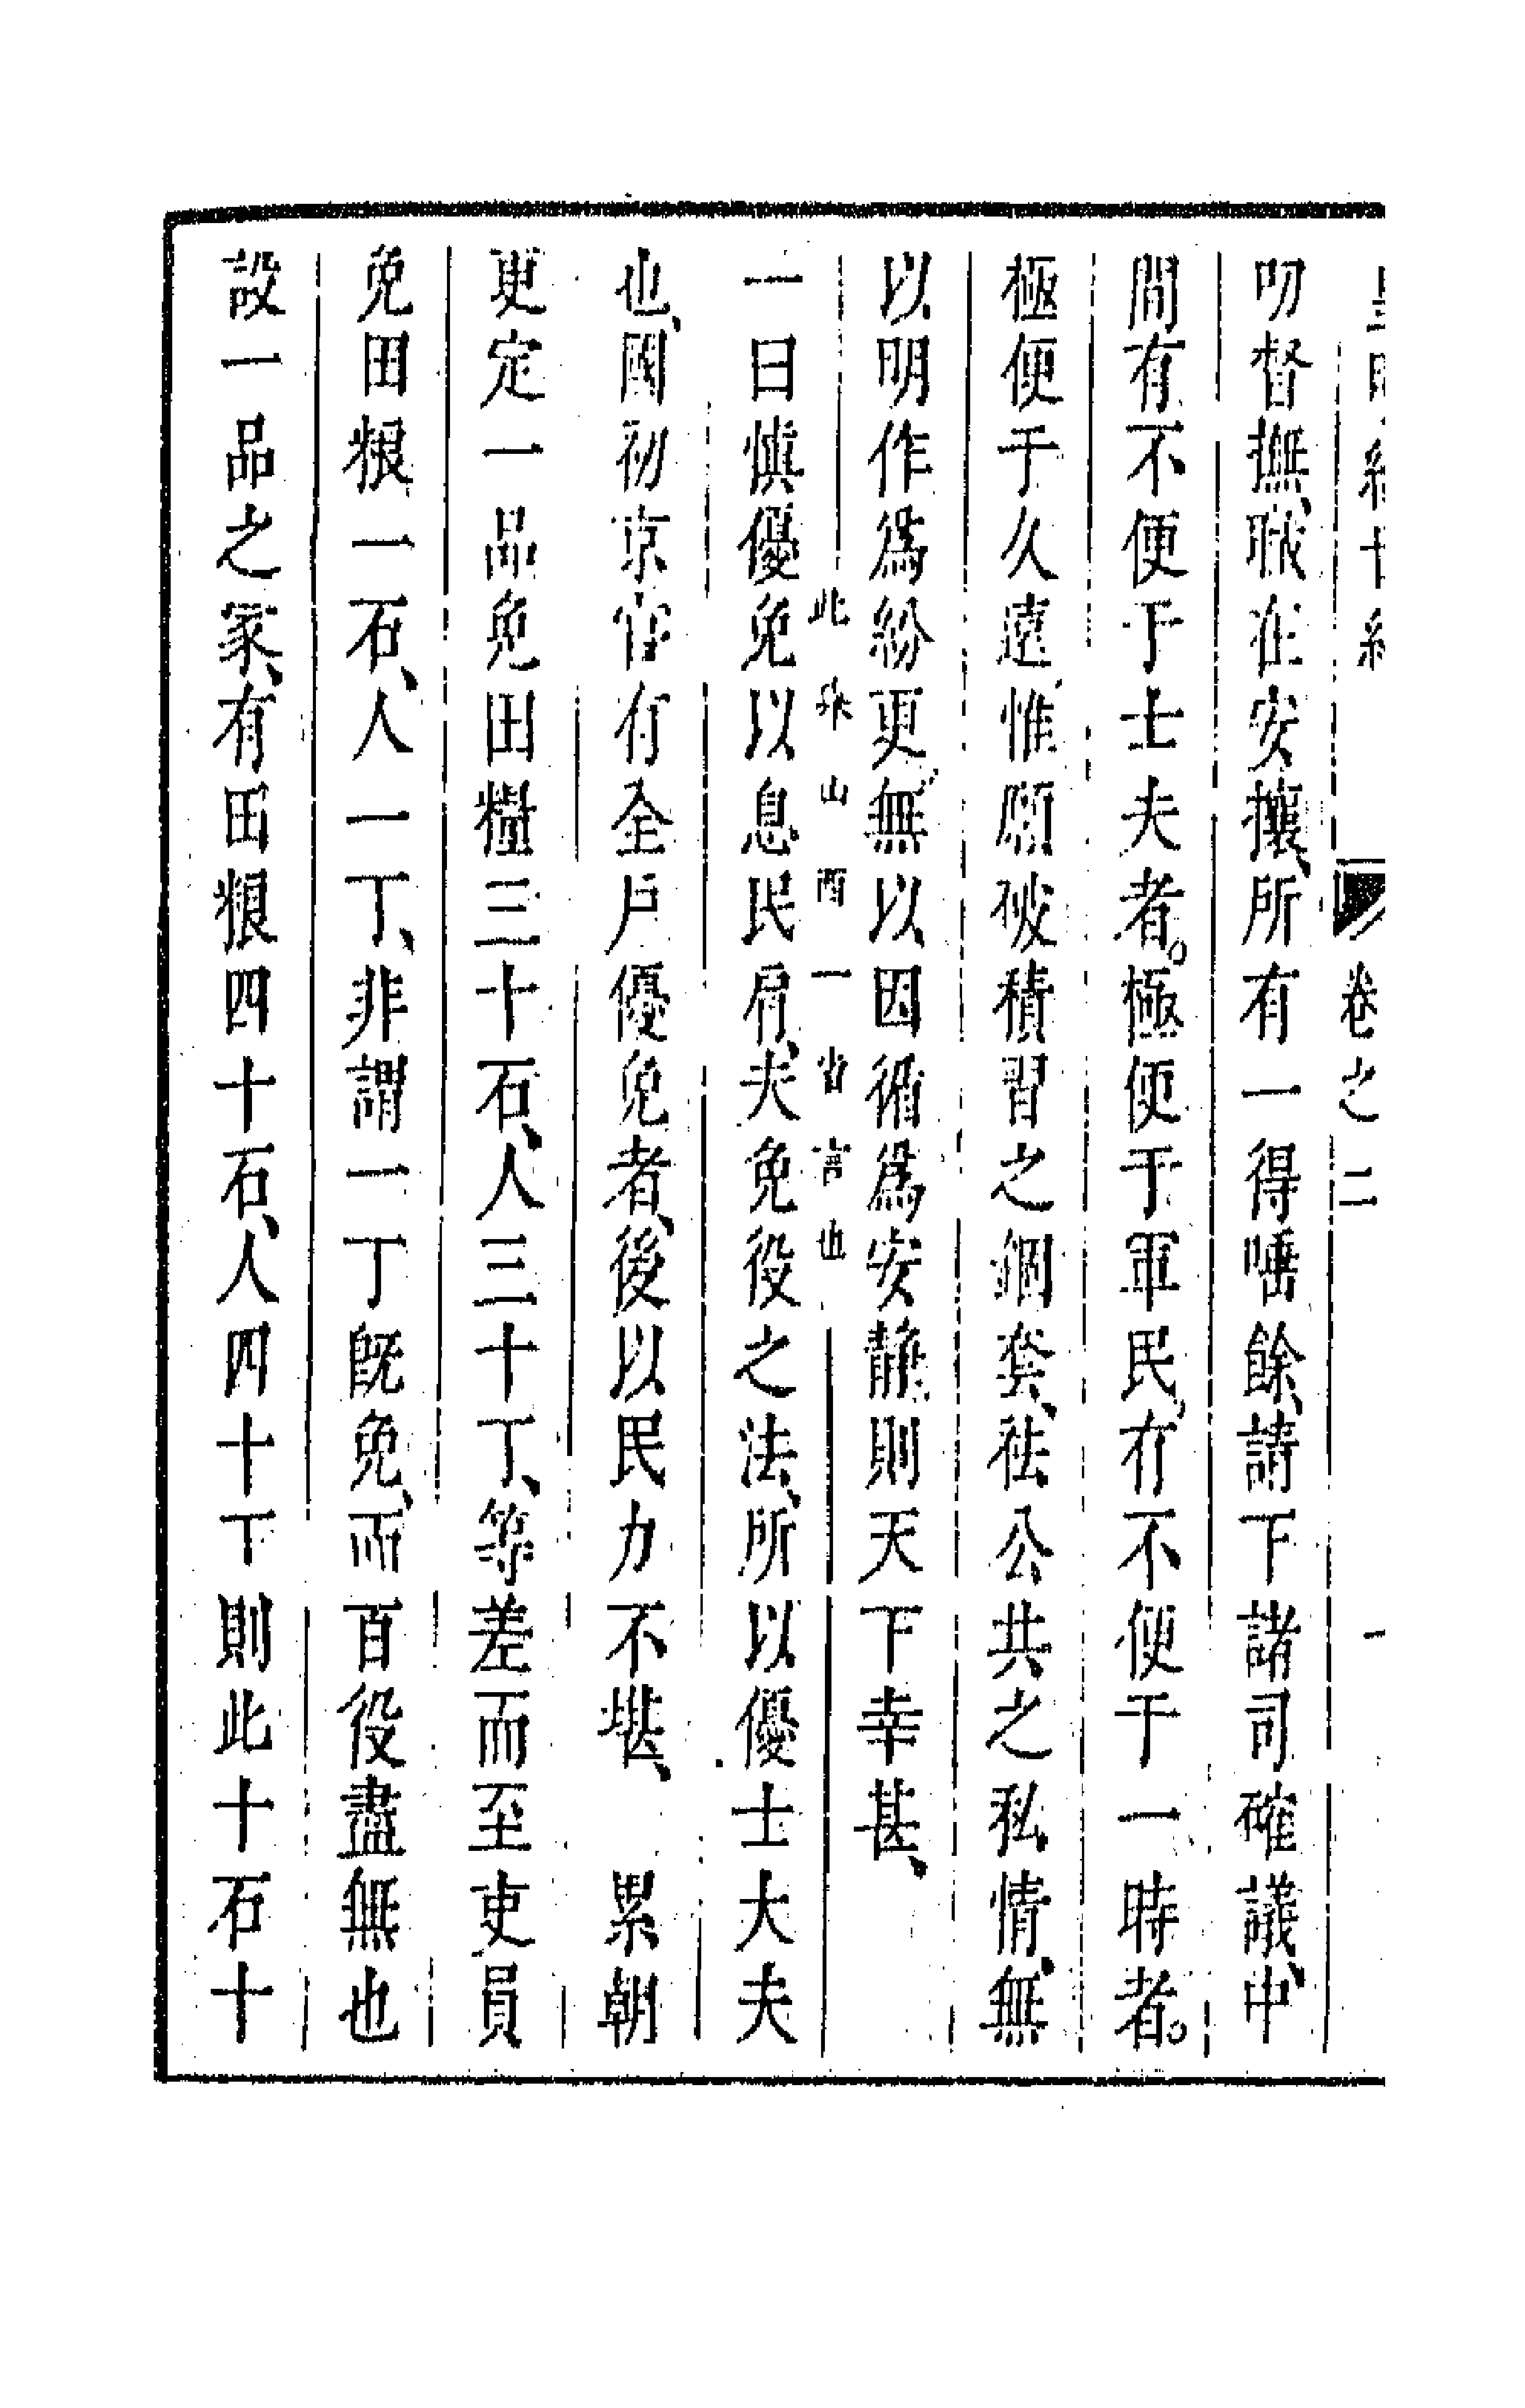 卷之二
叨督撫、職在安攘、所有一得唾餘、請下諸司確議、中
間有不便于士夫者。極便于軍民、有不便于一時者。
極便于久遠、惟願破積習之錮套、祛公共之私情、無
以明作爲紛更、無以因循爲安靜、則天下幸甚、
此非山西一省言也
一曰慎優免以息民肩、夫免役之法、所以優士大夫
也、國初京官有全戶優免者、後以民力不堪、 累朝
更定一品免田糧三十石、人三十丁、等差而至吏員
免田粮一石、人一丁、非謂一丁旣免、而百役盡無也
設一品之家、有田粮四十石、人四十丁則此十石十